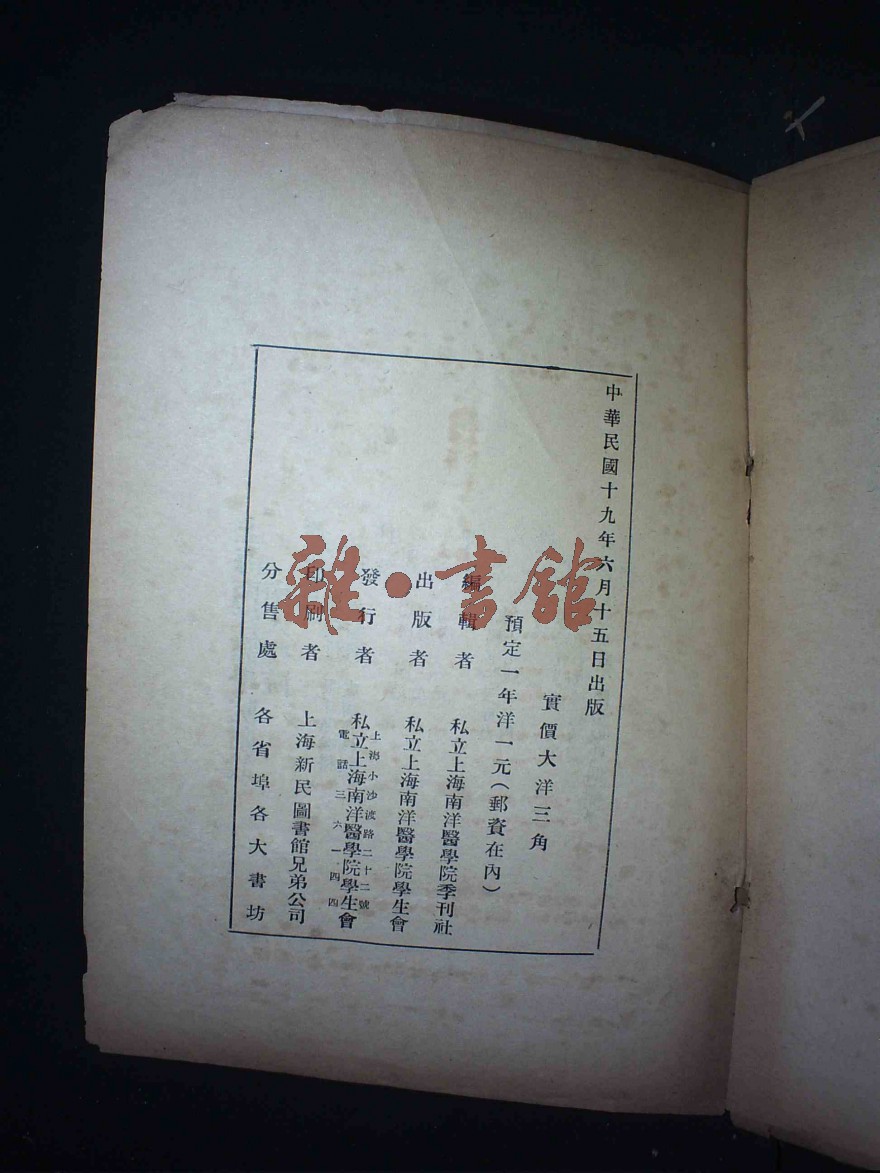 中華民國十九年六月十五日出版
實價大洋三角
預定一年洋一元(郵資在內)
編輯者 私立上海南洋醫學院季刊社
出版者 私立上海南洋醫學院學生會
發行者 私立上海南洋醫學院學生會
上海小沙渡路二十二號
電話三六一四四
印刷者 上海新民圖書館兄弟公司
分售處 各省埠各大書坊
雜·書館